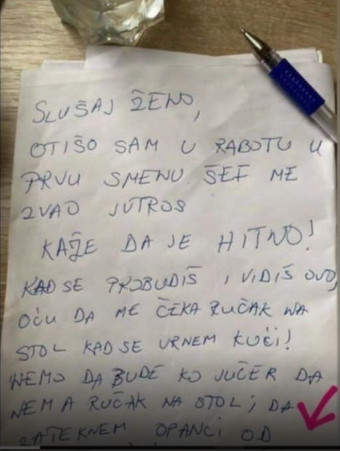 SLUŠAJ ŽENO,
OTIŠO SAM U RABOTU U
PRVU SMENU ŠEF ME
ZVAO JUTROS
KAŽE DA JE HITNO!
KAD SE PROBUDIŠ I VIDIŠ OVO,
OĆU DA ME ČEKA RUČAK NA
STOL KAD SE VRNEM KUĆI!
NEMO DA BUDE KO JUČER DA
NEMA RUČAK NA STOL; DA
ZATEKNEM OPANCI OD